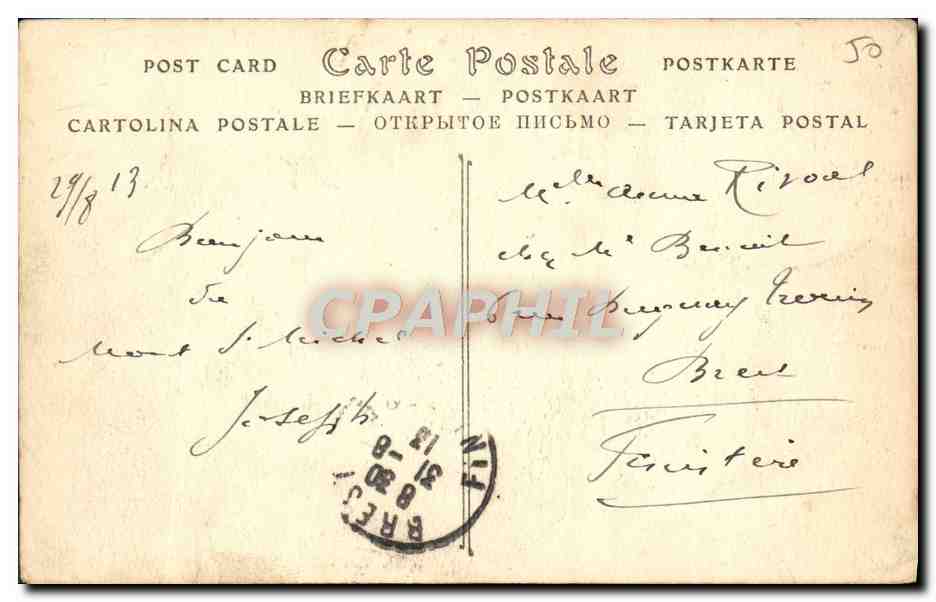 50
POST CARD Carte Postale POSTKARTE
BRIEFKAART — POSTKAART
CARTOLINA POSTALE — ОТКРЫТОЕ ПИСЬМО — TARJETA POSTAL
29/8 13
Bonjour
du
Mont St Michel
Joseph
Melle Anne Rivoal
chez Mr Benoit
rue Duguay Trouin
Brest
Finistère
BREST
8 30
31 -8
13
FIN
CPAPHIL